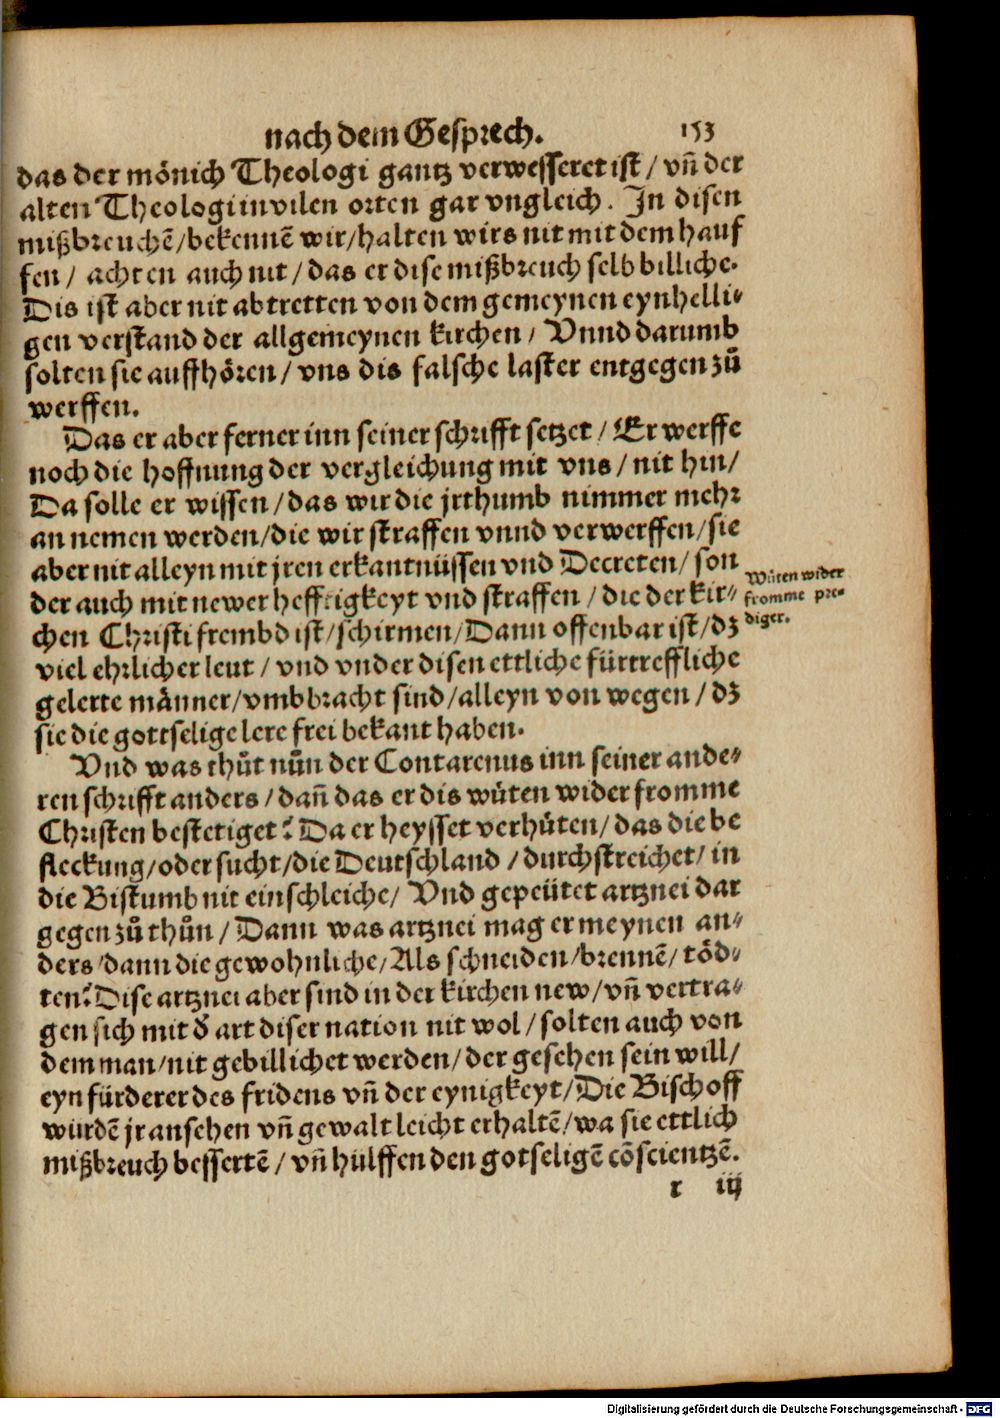 nach dem Gesprech. 153
das der mönich Theologi gantz verwesseret ist / vñ der
alten Theologi in vilen orten gar vngleich. In disen
mißbreuchē / bekennē wir / halten wirs nit mit dem hauf
fen / achten auch nit / das er dise mißbreuch selb billiche.
Dis ist aber nit abtretten von dem gemeynen eynhelli⸗
gen verstand der allgemeynen kirchen / Vnnd darumb
solten sie auffhören / vns dis falsche laster entgegen zů
werffen.
Das er aber ferner inn seiner schrifft setzet / Er werffe
noch die hoffnung der vergleichung mit vns / nit hin /
Da solle er wissen / das wir die jrthumb nimmer mehr
an nemen werden / die wir straffen vnnd verwerffen / sie
aber nit alleyn mit jren erkantnüssen vnd Decreten / son
der auch mit newer hefftigkeyt vnd straffen / die der kir⸗
chen Christi frembd ist / schirmen / Dann offenbar ist / dz
viel ehrlicher leut / vnd vnder disen ettliche fürtreffliche
gelerte männer / vmbbracht sind / alleyn von wegen / dz
sie die gottselige lere frei bekant haben.
Wüten wider
fromme pre⸗
diger.
Vnd was thůt nůn der Contarenus inn seiner ande⸗
ren schrifft anders / dañ das er dis wüten wider fromme
Christen bestetiget? Da er heysset verhüten / das die be
fleckung / oder sucht / die Deutschland / durchstreichet / in
die Bistumb nit einschleiche / Vnd gepeütet artznei dar
gegen zů thůn / Dann was artznei mag er meynen an⸗
ders / dann die gewohnliche / Als schneiden / brennē / töd⸗
ten? Dise artznei aber sind in der kirchen new / vñ vertra⸗
gen sich mit d̕ art diser nation nit wol / solten auch von
dem man / nit gebillichet werden / der gesehen sein will /
eyn fürderer des fridens vñ der eynigkeyt / Die Bischoff
würdē jr ansehen vñ gewalt leicht erhaltē / wa sie ettlich
mißbreuch bessertē / vñ hülffen den gotseligē cōscientzē.
r iij
Digitalisierung gefördert durch die Deutsche Forschungsgemeinschaft - DFG